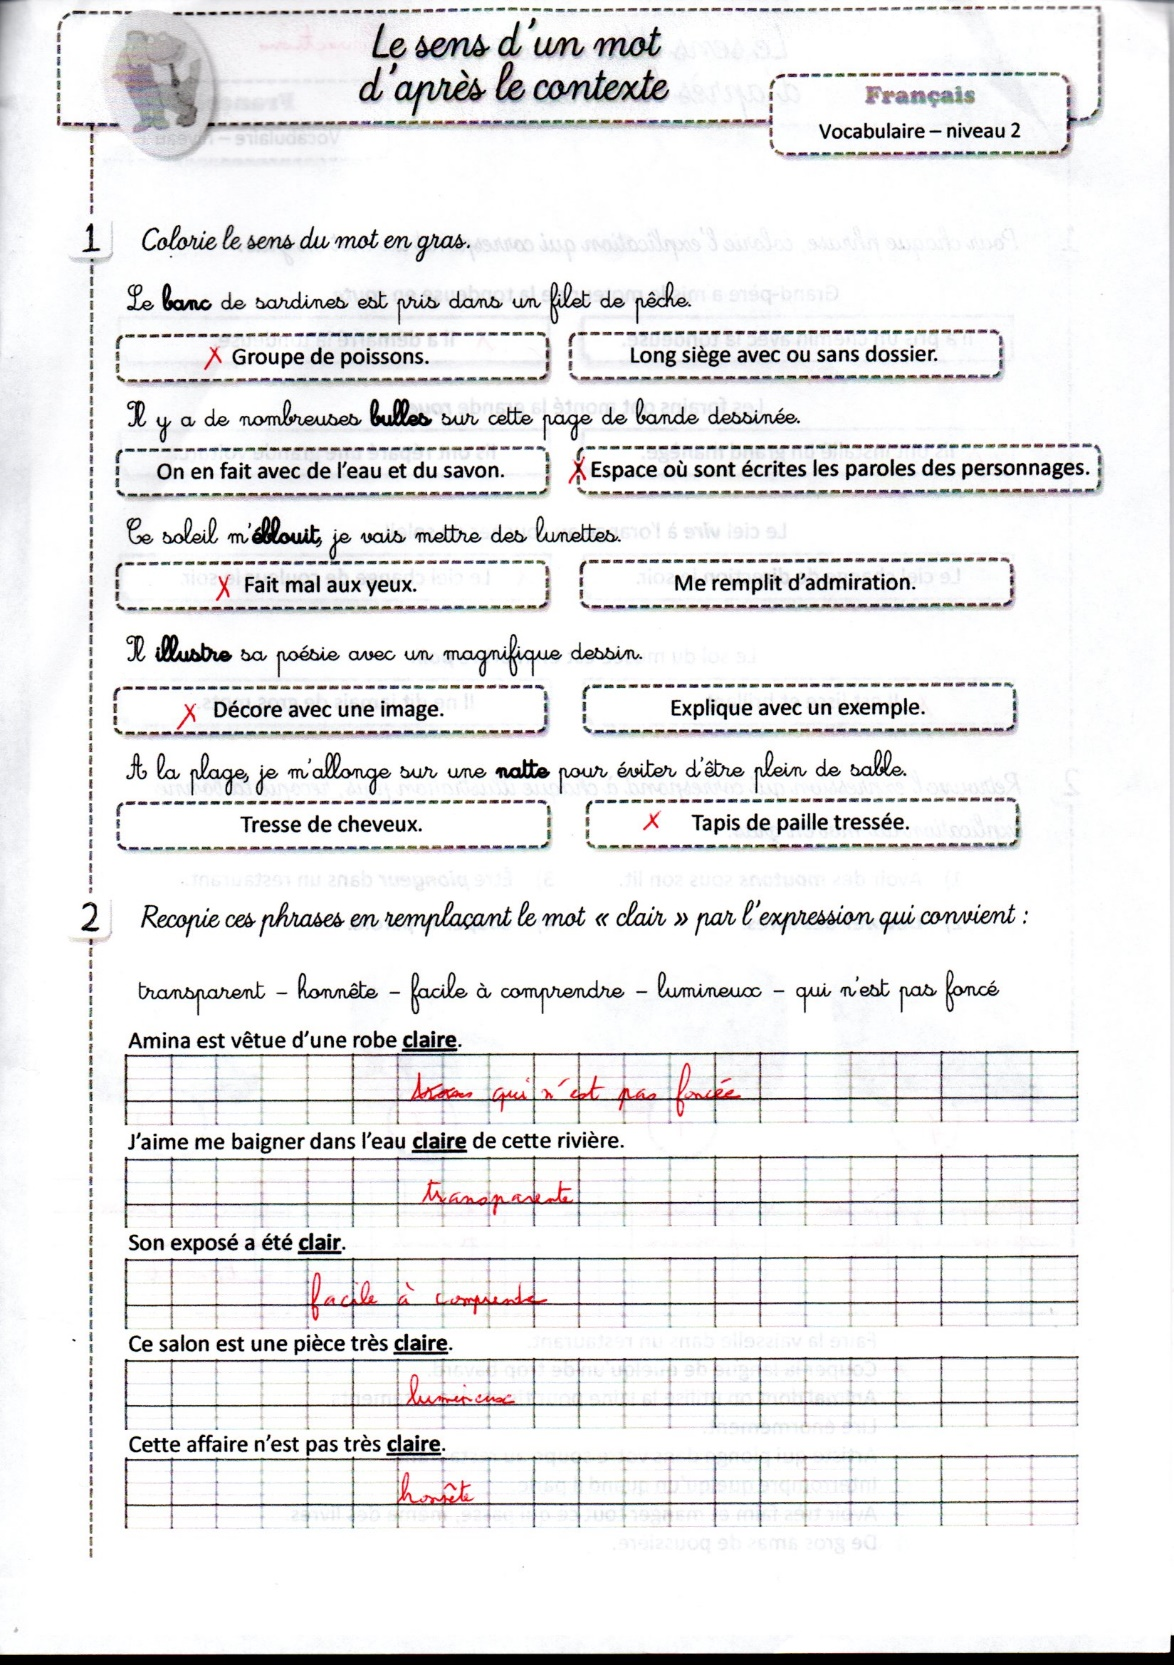 Le sens d'un mot
d'après le contexte
Français
Vocabulaire – niveau 2
1 Colorie le sens du mot en gras.
Le banc de sardines est pris dans un filet de pêche.
X Groupe de poissons. Long siège avec ou sans dossier.
Il y a de nombreuses bulles sur cette page de bande dessinée.
On en fait avec de l'eau et du savon. X Espace où sont écrites les paroles des personnages.
Ce soleil m'éblouit, je vais mettre des lunettes.
X Fait mal aux yeux. Me remplit d'admiration.
Il illustre sa poésie avec un magnifique dessin.
X Décore avec une image. Explique avec un exemple.
A la plage, je m'allonge sur une natte pour éviter d'être plein de sable.
Tresse de cheveux. X Tapis de paille tressée.
2 Recopie ces phrases en remplaçant le mot « clair » par l'expression qui convient :
transparent – honnête – facile à comprendre – lumineux – qui n'est pas foncé
Amina est vêtue d'une robe claire.
qui n'est pas foncée
J'aime me baigner dans l'eau claire de cette rivière.
transparente
Son exposé a été clair.
facile à comprendre
Ce salon est une pièce très claire.
lumineuse
Cette affaire n'est pas très claire.
honnête